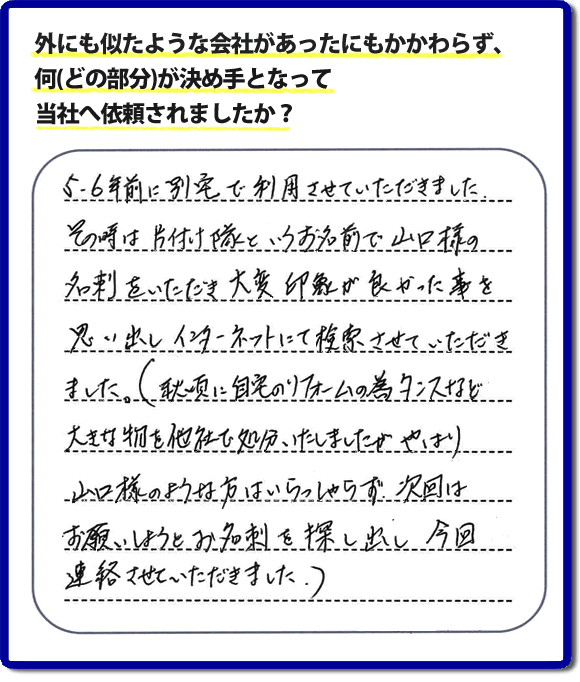 外にも似たような会社があったにもかかわらず、
何(どの部分)が決め手となって
当社へ依頼されましたか？
5-6年前に別宅で利用させていただきました.
その時は片付け隊というお名前で山口様の
名刺をいただき大変印象が良かった事を
思い出しインターネットにて検索させていただき
ました。(秋頃に自宅のリフォームの為タンスなど
大きな物を他社で処分いたしましたがやはり
山口様のような方はいらっしゃらず次回は
お願いしようとお名刺を探し出し今回
連絡させていただきました.)